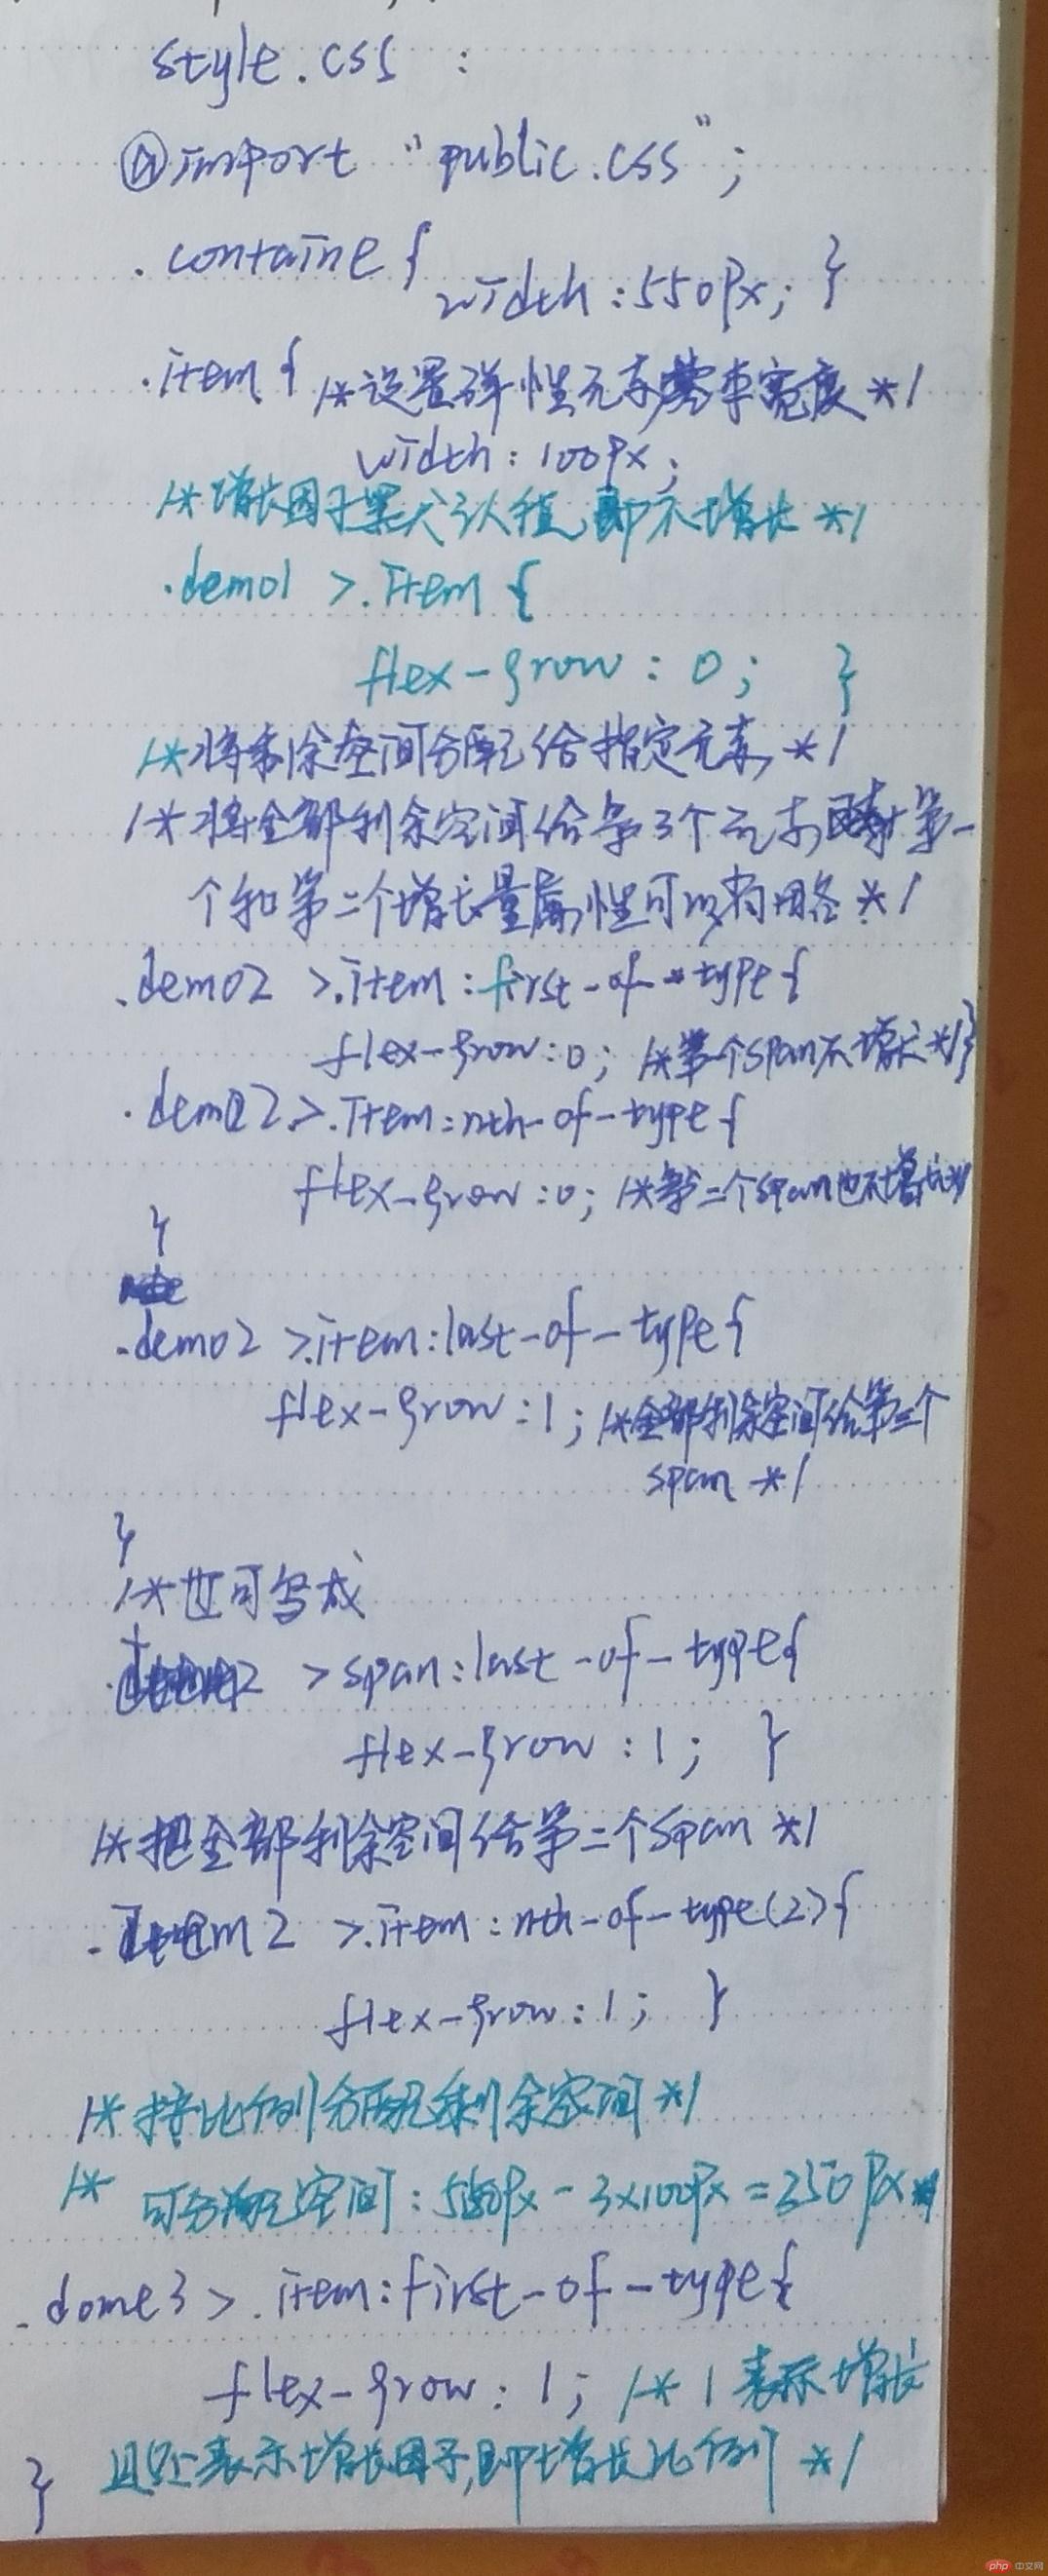 style.css :
@import "public.css";
.containe{
width:550px; }
.item { /*设置弹性元素宽度*/
width: 100px;
/*增长因子默认值,即不增长*/
.demo1 >.item {
flex-grow: 0; }
/*将剩余空间分配给指定元素*/
/*将全部剩余空间给第3个元素, 第一
个和第二个增长量属性可以省略*/
.demo2 >.item:first-of-type{
flex-grow:0; /*第一个span不增长*/}
.demo2>.item:nth-of-type{
flex-grow:0; /*第二个span也不增长*/
}
.demo2 >.item:last-of-type{
flex-grow:1; /*全部剩余空间给第三个
span */
}
/*也可写成
> span:last-of-type{
flex-grow:1; }
/*把全部剩余空间给第二个span */
m2 >.item:nth-of-type(2){
flex-grow:1; }
/*按比例分配剩余空间*/
/* 可分配空间: 550px - 3x100px = 250px
.dome3 > .item:first-of-type{
flex-grow: 1; /* 1表示增长
且还表示增长因子,即增长比例 */
}
php 中文网